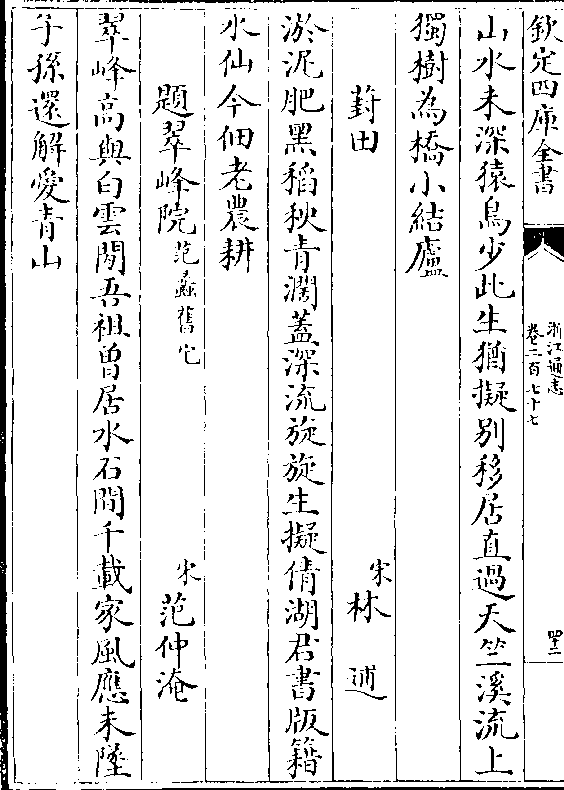 欽定四庫全書
浙江通志
卷二百七十七
四十二
山水未深猿鳥少此生猶擬别移居直過天竺溪流上
獨樹為橋小結廬
葑田
宋林逋
淤泥肥黑稻秧青濶蓋深流旋旋生擬倩湖君書版籍
水仙今佃老農耕
題翠峰院范蠡舊宅
宋范仲淹
翠峰高與白雲閒吾祖曾居水石間千載家風應未墜
子孫還解愛青山